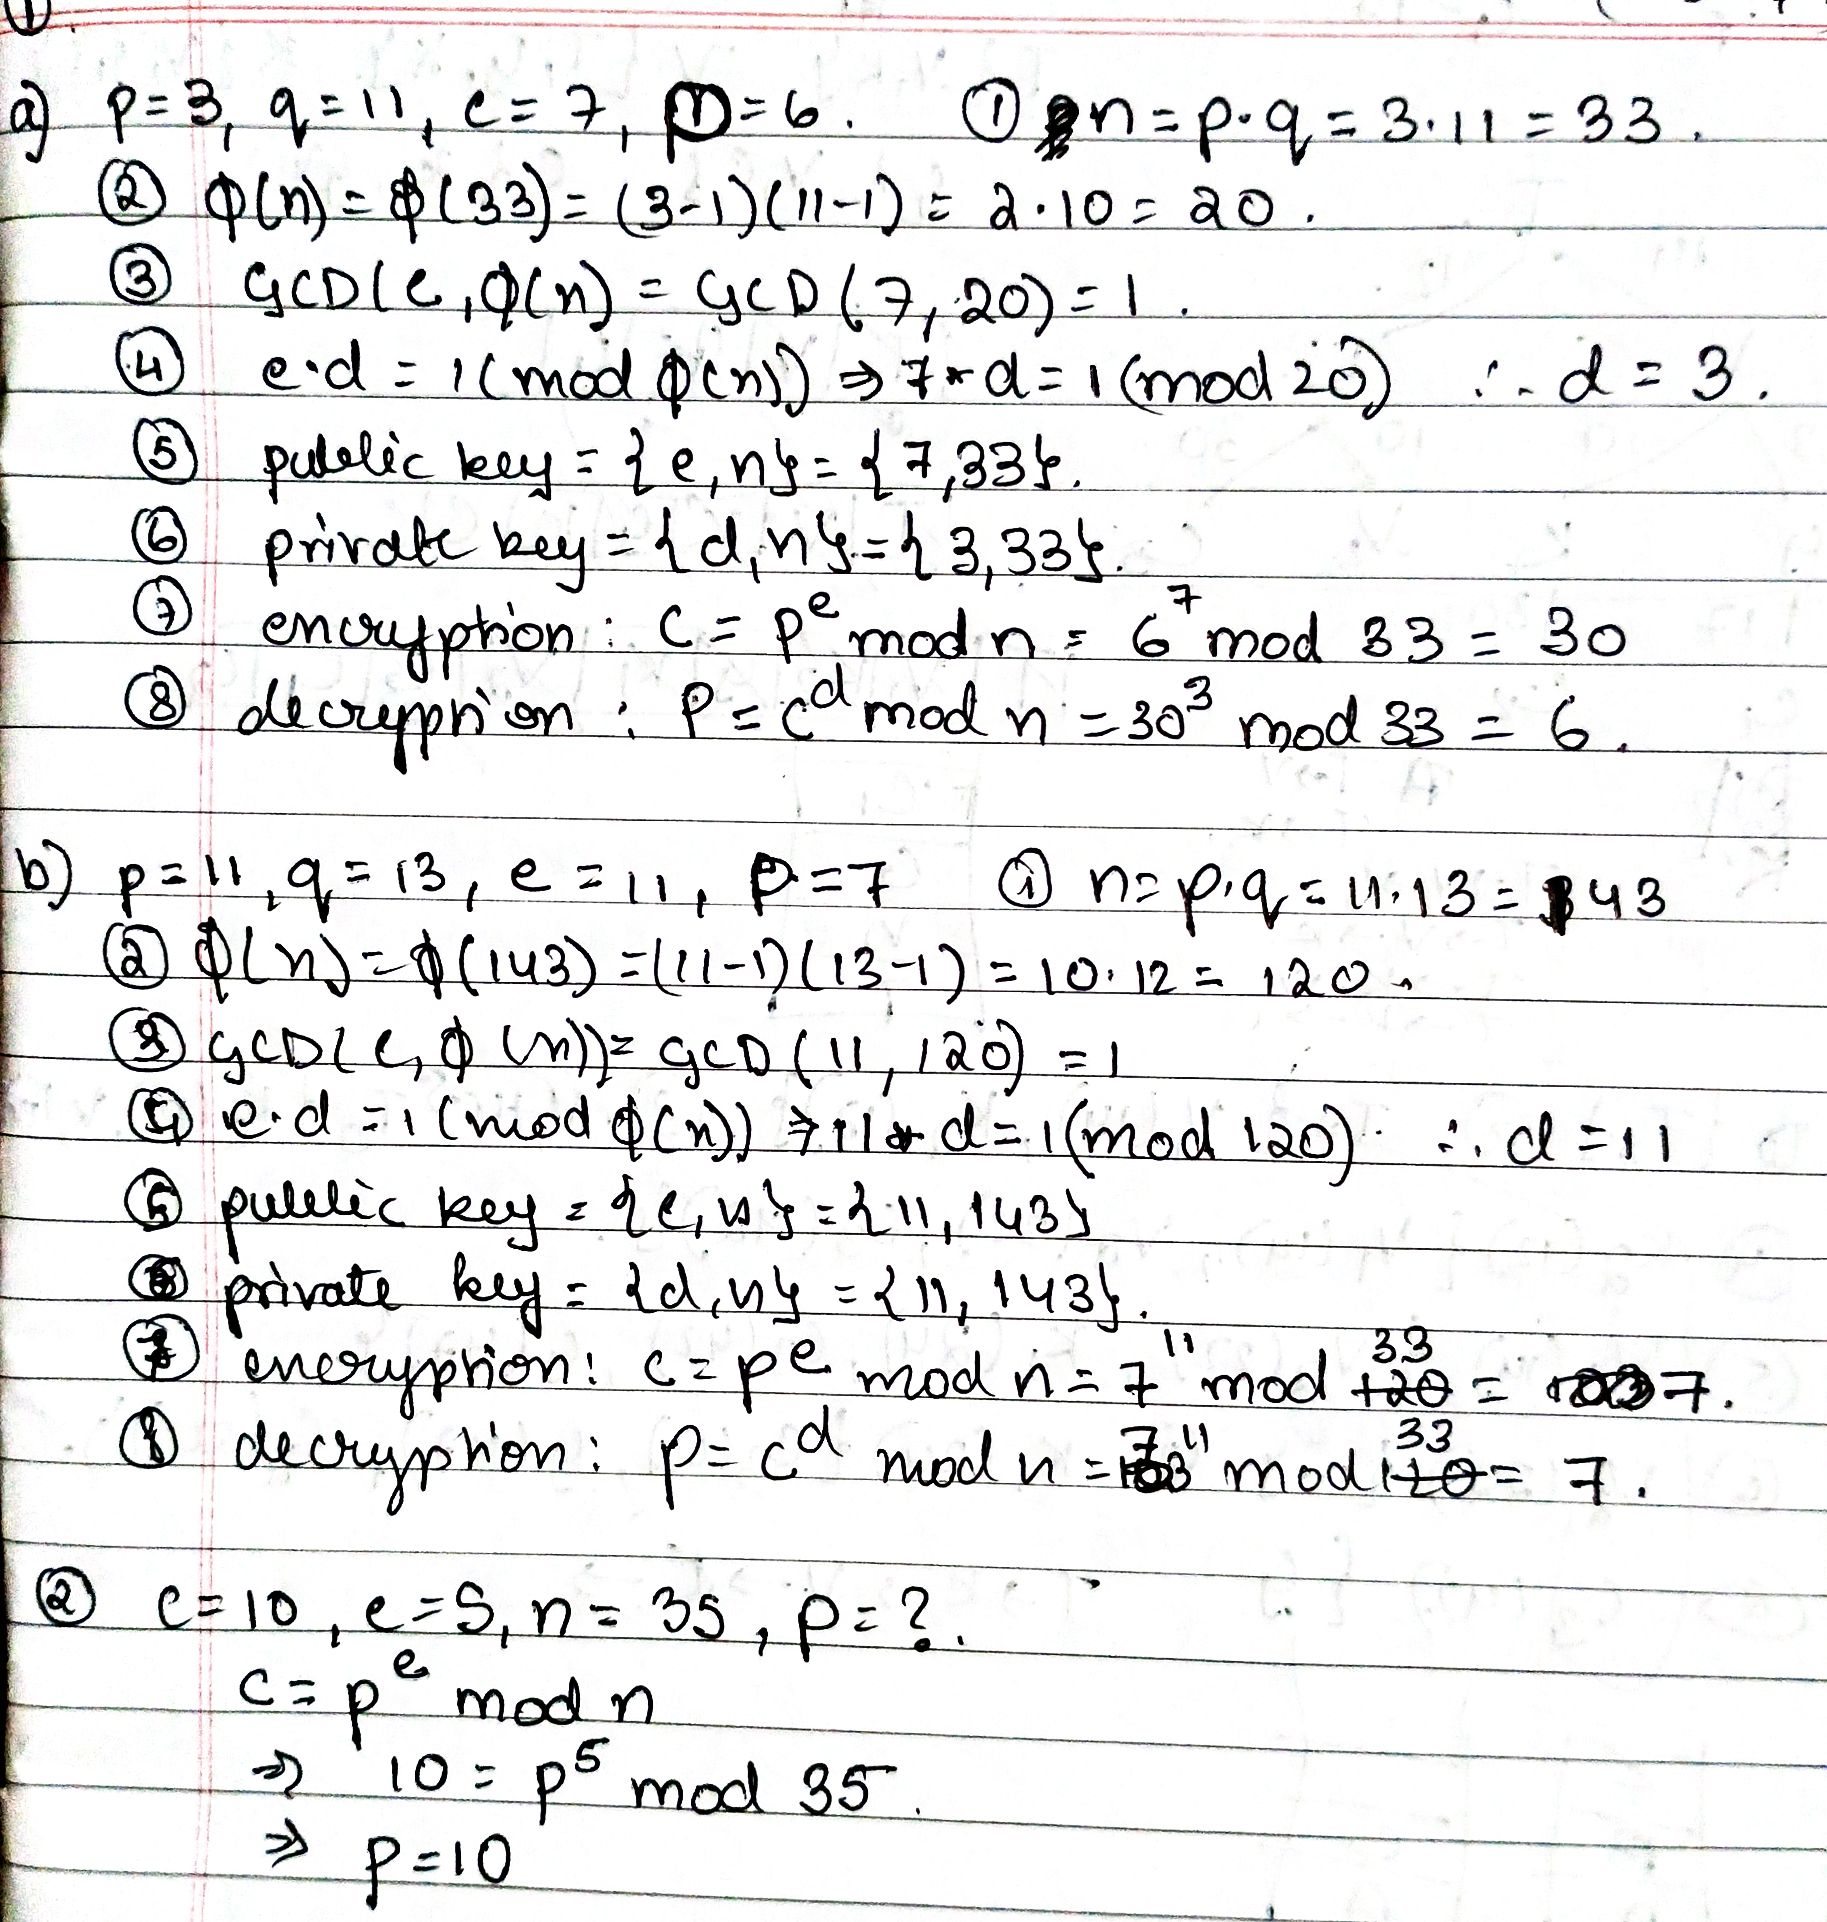 ①.
a) p=3, q=11, e=7, p=6. ① n=p·q=3·11=33.
② ϕ(n)=ϕ(33)=(3-1)(11-1)=2·10=20.
③ GCD(e,ϕ(n)=GCD(7,20)=1.
④ e·d=1(mod ϕ(n))⇒7*d=1(mod 20) ∴ d=3.
⑤ public key={e,n}={7,33}.
⑥ private key={d,n}={3,33}.
⑦ encryption: c=p^e mod n=6^7 mod 33=30
⑧ decryption: P=c^d mod n=30^3 mod 33=6.
b) p=11, q=13, e=11, p=7 ① n=p·q=11·13=143
② ϕ(n)=ϕ(143)=(11-1)(13-1)=10·12=120.
③ GCD(e,ϕ(n))=GCD(11,120)=1
④ e·d=1(mod ϕ(n))⇒11*d=1(mod 120) ∴ d=11
⑤ public key={e,n}={11,143}
⑥ private key={d,n}={11,143}.
⑦ encryption: c=p^e mod n=7^11 mod 120 33=7.
⑧ decryption: p=c^d mod n=7^11 mod 120 33=7.
② c=10, e=5, n=35, p=?.
c=p^e mod n
⇒ 10=p^5 mod 35.
⇒ p=10